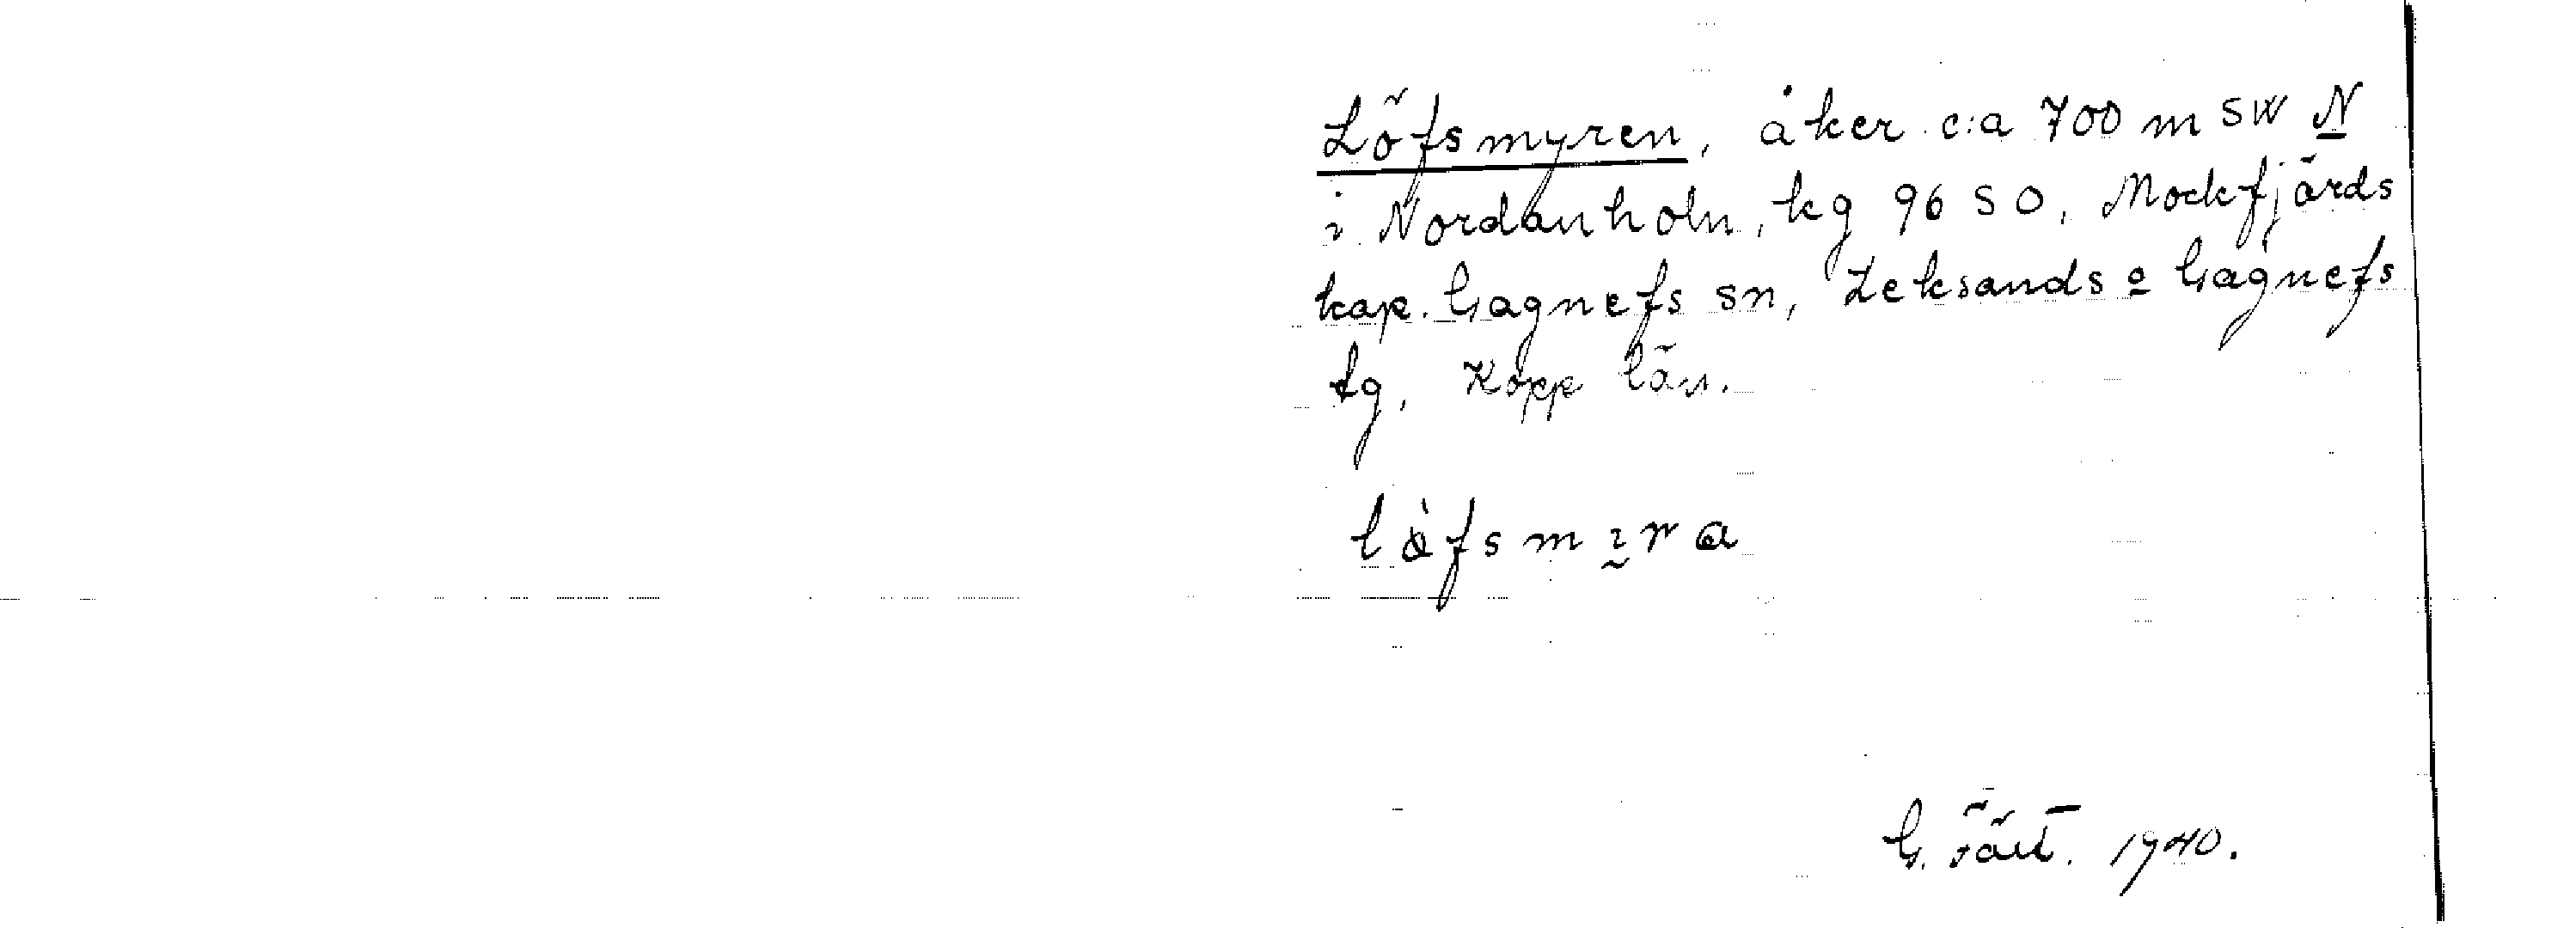 Löfsmyren, åker c:a 700 m SW N
i Nordanholn, kg 96 SO, Mockfjärds
kap. Gagnefs sn, Leksands o Gagnefs
tg, Kopp län.
1940.